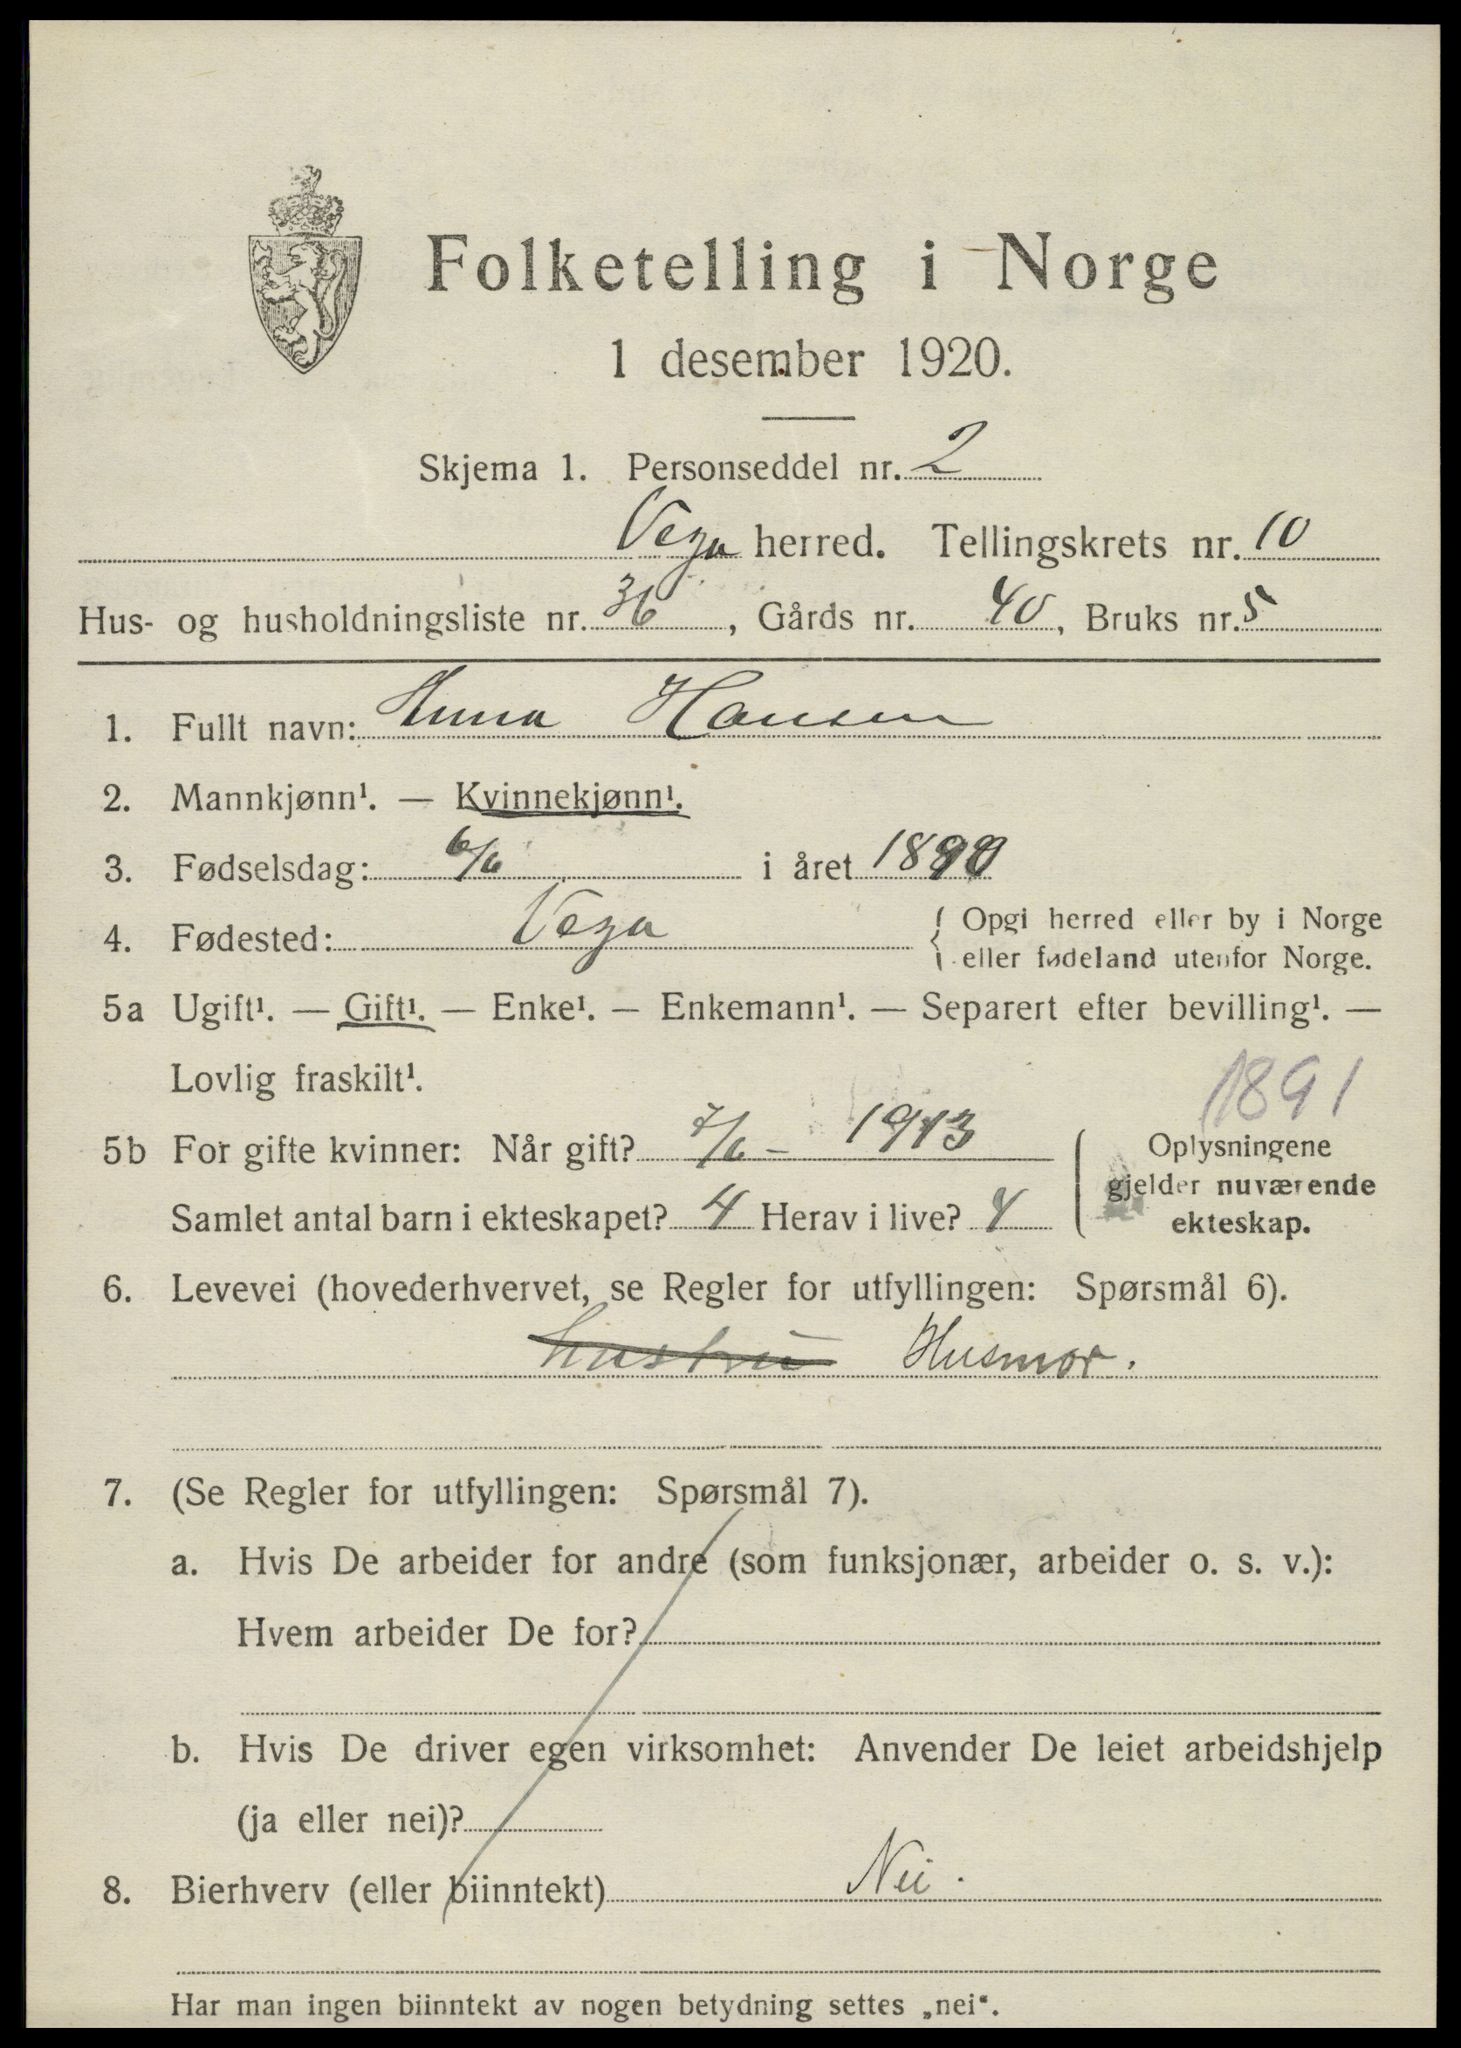 Folketelling i Norge
1 desember 1920.
Skjema 1. Personseddel nr. 2
Vega herred. Tellingskrets nr. 10
Hus- og husholdningsliste nr. 36, Gårds nr. 40, Bruks nr. 5
1. Fullt navn: Anna Hansen
2. Mannkjønn¹. — Kvinnekjønn¹.
3. Fødselsdag: 6/6 i året 1890
4. Fødested: Vega { Opgi herred eller by i Norge
eller fødeland utenfor Norge.
5a Ugift¹. — Gift¹. — Enke¹. — Enkemann¹. — Separert efter bevilling¹. —
Lovlig fraskilt¹.
1891
5b For gifte kvinner: Når gift? 7/6 - 1913 { Oplysningene
gjelder nuværende
Samlet antal barn i ekteskapet? 4 Herav i live? 4 ekteskap.
6. Levevei (hovederhvervet, se Regler for utfyllingen: Spørsmål 6).
hustru Husmor.
7. (Se Regler for utfyllingen: Spørsmål 7).
a. Hvis De arbeider for andre (som funksjonær, arbeider o. s. v.):
Hvem arbeider De for?
b. Hvis De driver egen virksomhet: Anvender De leiet arbeidshjelp
(ja eller nei)?
8. Bierhverv (eller biinntekt) Nei.
Har man ingen biinntekt av nogen betydning settes „nei“.